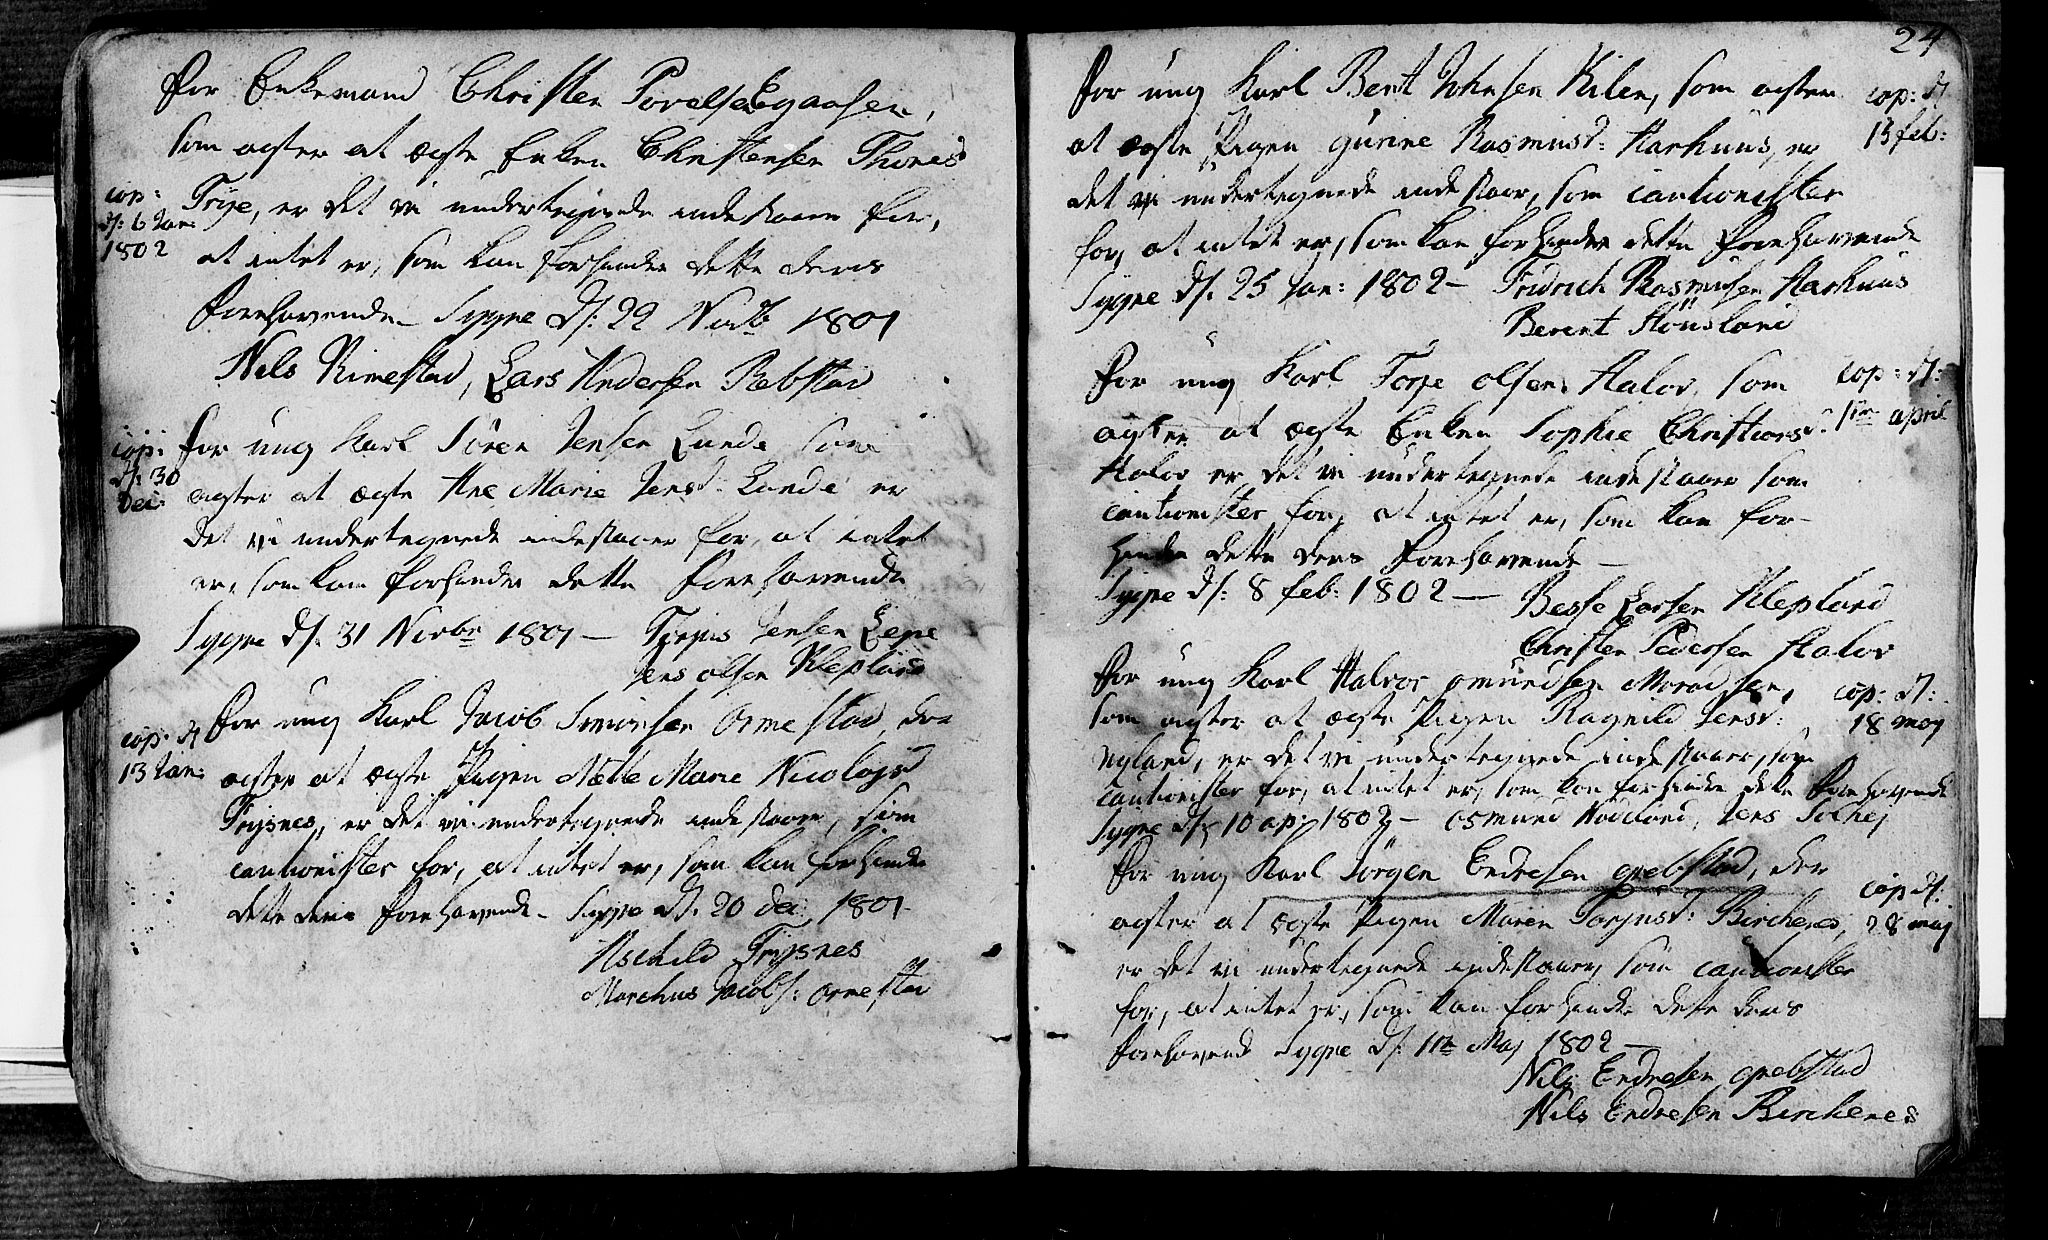 For Enkemand Christen Povelsen Egaasen,
som agter at ægte Enken Christensen Thores
cop:
d/: 6 Jan:
1802
Frye, er det vi undertegnede indestaaer for,
at intet er, som kan forhindre dette deres
forehavende – Sygne d/: 22 Novb 1801
Nils Rimestad, Lars Andersen Rebstad
cop:
d/: 30
Dec:
for ung Karl Sören Jensen Lunde som
agter at ægte Ane Marie Jensd: Lunde er
det vi undertegnede indestaaer for, at intet
er, som kan forhindre dette forehavende
Sygne d/: 31 Novbr 1801 – Jensen Eege
Jens Olsen Klepland
cop: d/
13 Jan:
for ung Karl Jacob Simonsen Ormestad, der
agter at ægte Pigen Mette Marie Nicolajsd
Frysnes, er det vi undertegnede indestaaer, som
cautionister for, at intet er, som kan forhindre
dette deres forehavende – Sygne d/: 20 dec: 1801
Aschild Frysnes
Marchus Jacobs: Ormestad
24
For ung Karl Bent Johnsen Kilen, som agter
cop: d/
13 feb:
at ægte Pigen Gurine Rasmusd: Aarhuus, er
det vi undertegnede indestaaer, som cautionister
for, at intet er, som kan forhindre dette forehavende
Sygne d/: 25 Jan: 1802 – Fridrich Rasmusen Aarhuus
Berent Stöusland
For ung Karl Torje Olsen Aalov, som
cop: d/:
1te april
agter at ægte Enken Sophie Christiansd:
Aalov er det vi undertegnede indestaaer som
cautionister for, at intet er, som kan for-
hindre dette deres forehavende –
Sygne d/: 8 feb: 1802 – Besse Larsen Klepland
Christen Pedersen Aalov
For ung Karl Halvor Omundsen
cop: d/:
18 may
som agter at ægte Pigen Ragnild Jensd:
Nyland, er det vi undertegnede indestaaer, som
cautionister for, at intet er, som kan forhindre dette forehavende
Sygne d/: 10 ap: 1802 – Osmund Hödeland, Jens Solhej
For ung Karl Jörgen Endresen Grebstad, der
cop d/:
28 maj
agter at ægte Pigen Maren Torjusd: Birchenes,
er det vi undertegnede indestaaer, som cautionister
for, at intet er, som kan forhindre dette deres
forehavende Sygne d/: 11te Maj 1802 –
Nils Endresen Grebstad
Nils Endresen Birchenes